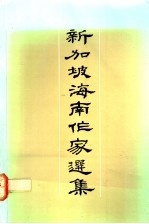 新加坡海南作家選集